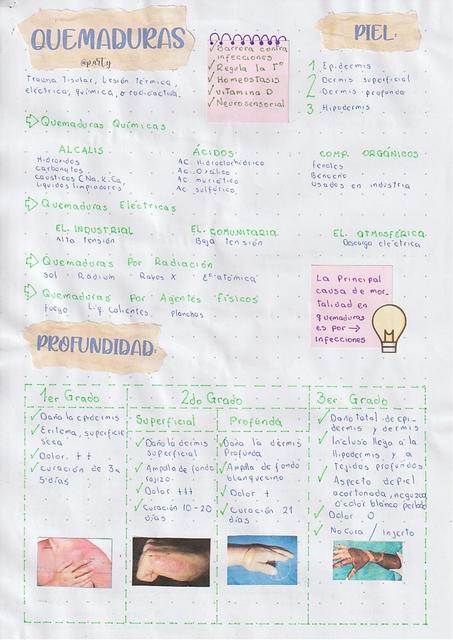 QUEMADURAS
@party
Trauma Tisular, Lesión térmica,
eléctrica, química, o radioactiva.
✓ Barrera contra
infecciones
✓ Regula la T°
✓ Homeostasis
✓ Vitamina D
✓ Neurosensorial
PIEL:
1 Epidermis
2 Dermis superficial
Dermis profunda
3 Hipodermis
Quemaduras Químicas
ALCALIS
Hidróxidos
Carbonatos
Causticos CNa, K, Ca,
Liquidos limpiadores
ÁCIDOS
AC. Hidroclorhídrico
AC. Oxálico
AC. muriático
AC. sulfúrico
COMP. ORGÁNICOS
Fenoles
Benceno
Usados en industria
Quemaduras Eléctricas
EL. INDUSTRIAL
Alta Tensión
EL. COMUNITARIA
Baja Tensión
EL. ATMOSFÉRICA
Descarga eléctrica
Quemaduras Por Radiación
Sol - Radium Rayos X E° atómica
Quemaduras Por Agentes Físicos
Fuego Liq. Calientes, planchas
La Principal
causa de mor-
talidad en
quemaduras
es por →
infecciones
PROFUNDIDAD:
1er Grado
✓ Daña la epidermis
✓ Eritema, superficie
seca
✓ Dolor ++
✓ curación de 3 a
5 días
2do Grado
Superficial
✓ Daña la dermis
superficial
✓ Ampolla de fondo
rojizo
✓ Dolor +++
✓ Curación 10-20
días
Profunda
✓ Daña la dermis
Profunda
✓ Ampolla de fondo
blanquecino
✓ Dolor +
✓ Curación 21
días
3er Grado
✓ Daño total de epi-
dermis y dermis
✓ Incluso llega a la
Hipodermis y a
Tejidos profundos
✓ Aspecto de piel
acartonada, negruzca
o color blanco perlado
✓ Dolor 0
✓ No cura / injerto